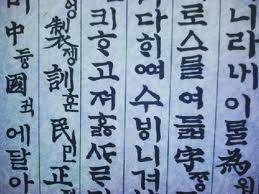 니라내이를為윙
로스믈여듧字ᄍᆞᆼ
다히여수비니겨
킈ᄒᆞ고져ᄒᆞᇙ
製졩訓훈民민正
中듕國귁에달아